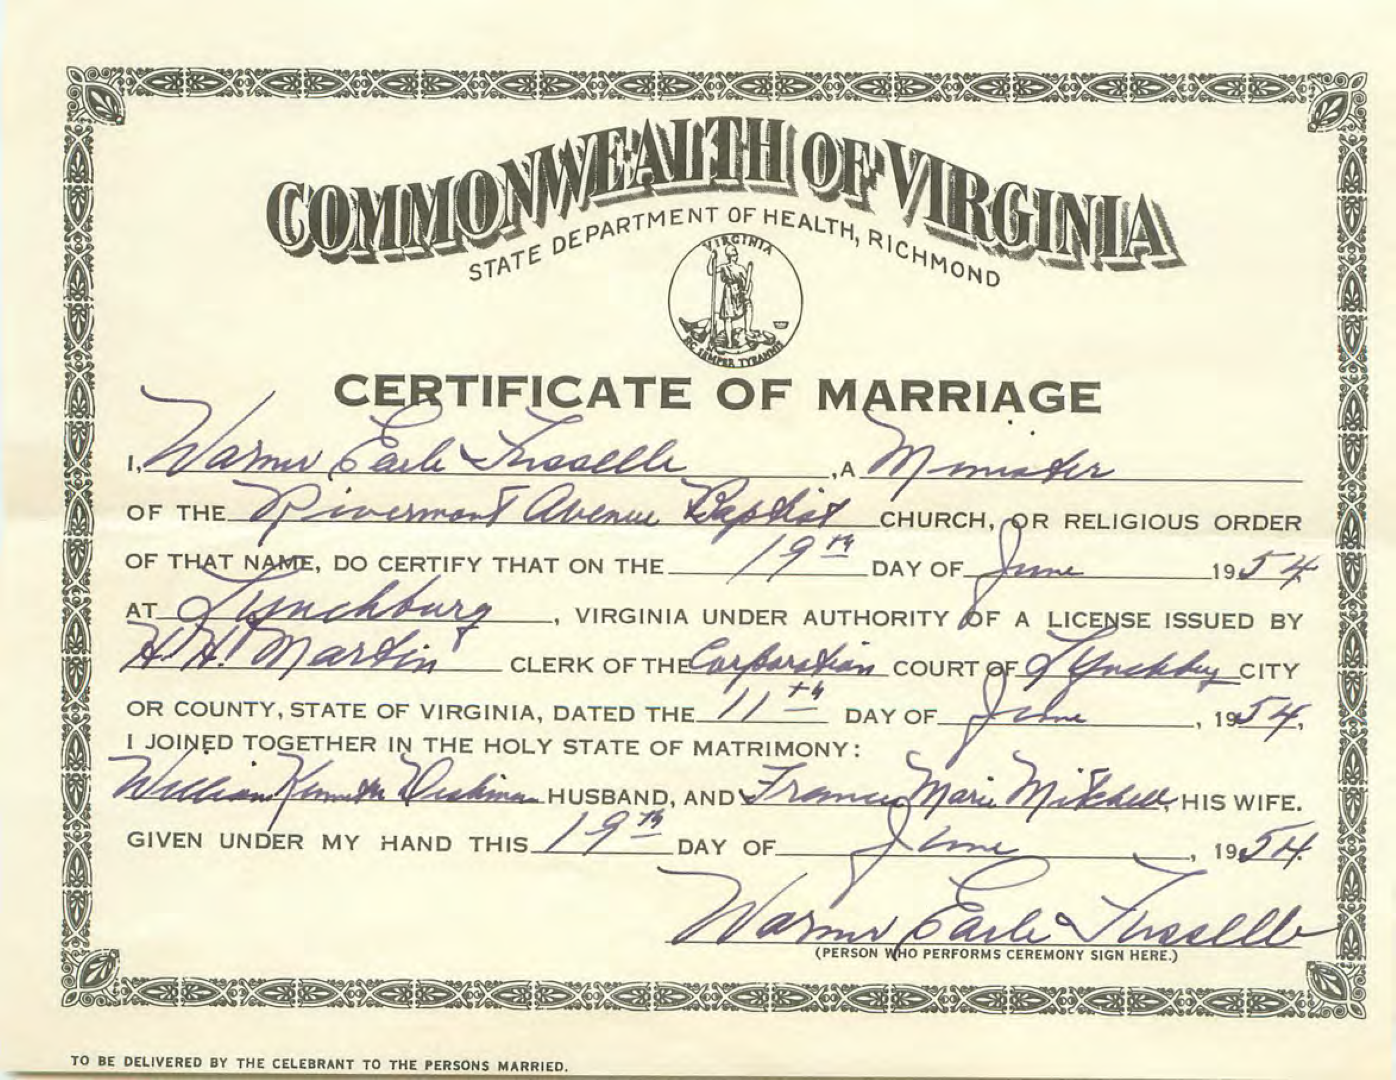 COMMONWEALTH OF VIRGINIA
STATE DEPARTMENT OF HEALTH, RICHMOND
VIRGINIA
SIC SEMPER TYRANNIS
CERTIFICATE OF MARRIAGE
I, Warner Earle Fusselle, A Minister
OF THE Rivermont Avenue Baptist CHURCH, OR RELIGIOUS ORDER
OF THAT NAME, DO CERTIFY THAT ON THE 19th DAY OF June 1954
AT Lynchburg, VIRGINIA UNDER AUTHORITY OF A LICENSE ISSUED BY
H. H. Martin CLERK OF THE Corporation COURT OF Lynchbg CITY
OR COUNTY, STATE OF VIRGINIA, DATED THE 11th DAY OF June, 1954,
I JOINED TOGETHER IN THE HOLY STATE OF MATRIMONY:
William Kenneth Dishman HUSBAND, AND Frances Marie Mitchell, HIS WIFE.
GIVEN UNDER MY HAND THIS 19th DAY OF June, 1954.
Warner Earle Fusselle
(PERSON WHO PERFORMS CEREMONY SIGN HERE.)
TO BE DELIVERED BY THE CELEBRANT TO THE PERSONS MARRIED.